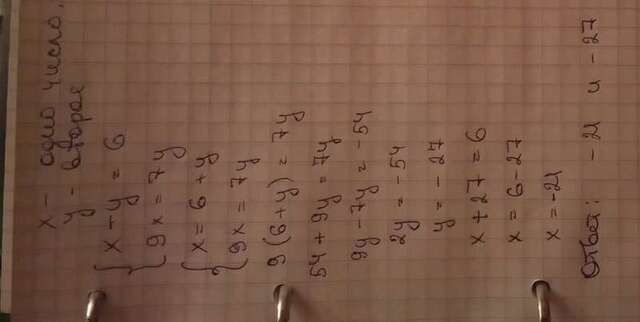 x - одно число.
y - второе
{ x + y = 6
{ 9x = 7y
{ x = 6 + y
{ 9x = 7y
9(6+y) = 7y
54 + 9y = 7y
9y - 7y = -54
2y = -54
y = -27
x + 27 = 6
x = 6 - 27
x = -21
Ответ: -21 и -27